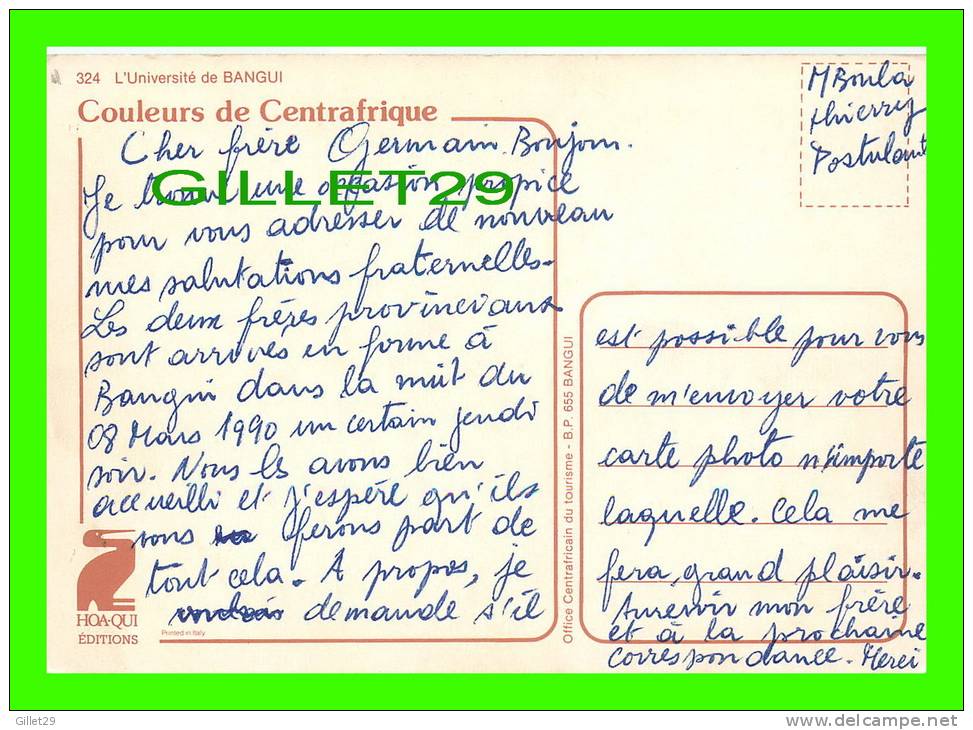 324 L'Université de BANGUI
Couleurs de Centrafrique
MBoula
thierry
Postulant
Cher frère Germain. Bonjour.
Je trouve une occasion propice
pour vous adresser de nouveau
mes salutations fraternelles.
Les deux frères provinciaux
sont arrivés en forme à
Bangui dans la nuit du
08 Mars 1990 un certain jeudi
soir. Nous les avons bien
accueilli et j'espère qu'ils
vous ferons part de
tout cela. A propos, je
demande s'il
est possible pour vous
de m'envoyer votre
carte photo n'importe
laquelle. Cela me
fera grand plaisir.
Aurevoir mon frère
et à la prochaine
correspondance. Merci
GILLET29
HOA-QUI
ÉDITIONS
Printed in Italy
Office Centrafricain du tourisme - B.P. 655 BANGUI
Gillet29
http://www.delcampe.net